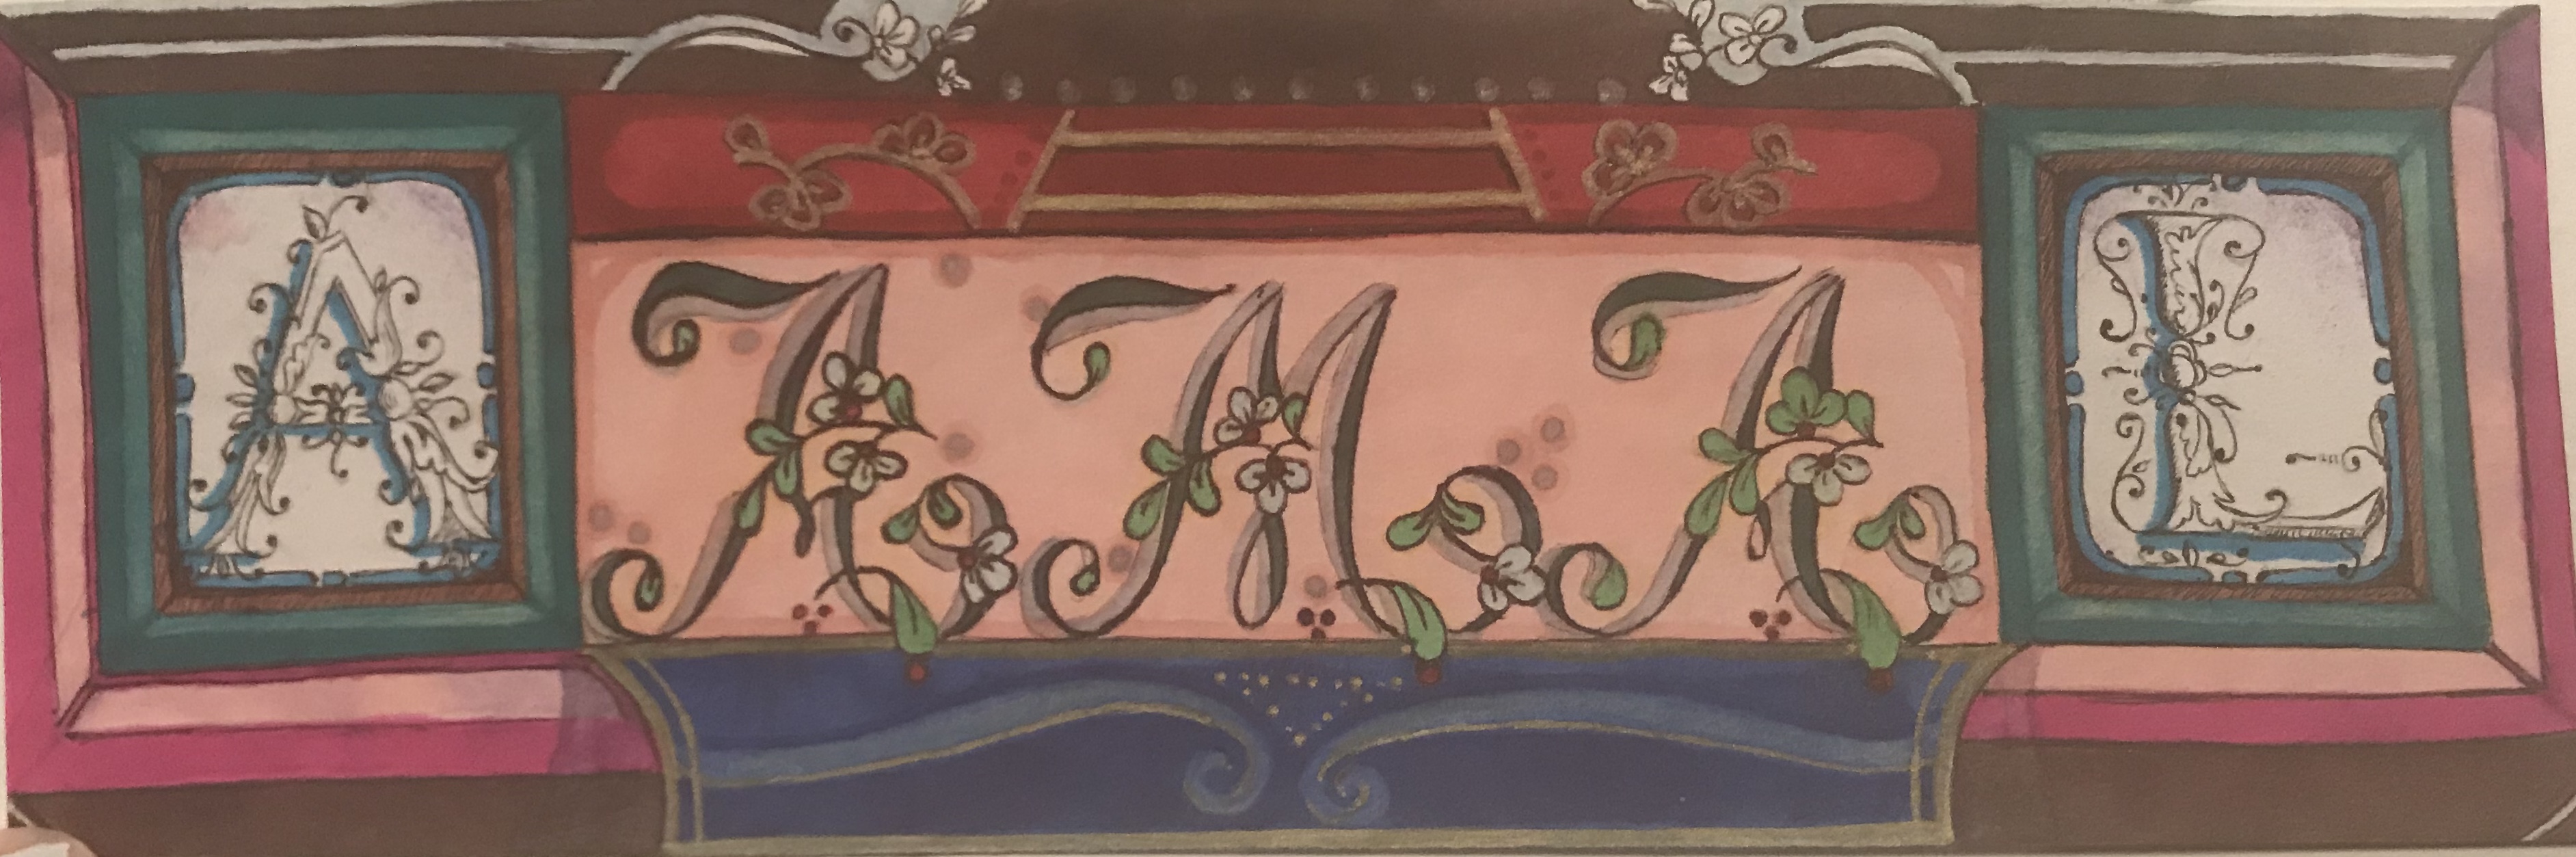 A AMA L